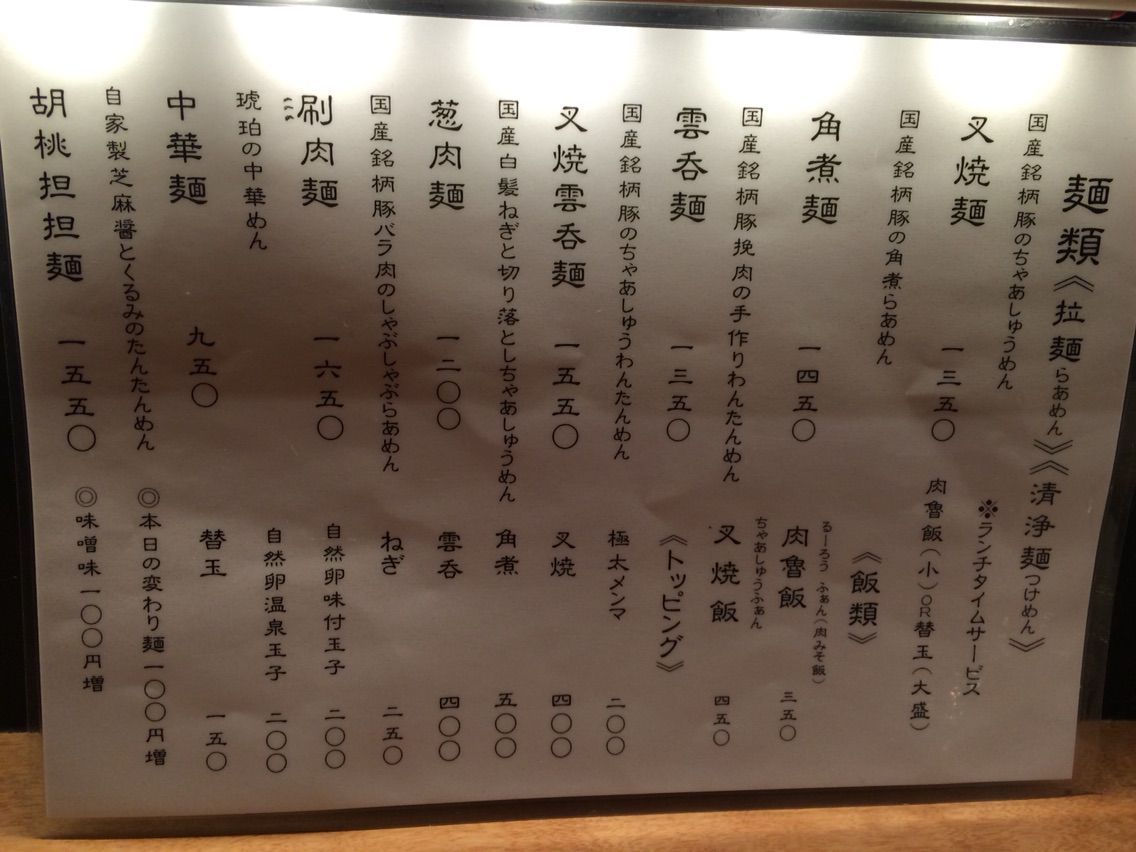 麺類《拉麺らあめん》《清浄麺つけめん》
国産銘柄豚のちゃあしゅうめん
叉焼麺 一三五〇
国産銘柄豚の角煮らあめん
角煮麺 一四五〇
国産銘柄豚挽肉の手作りわんたんめん
雲呑麺 一三五〇
国産銘柄豚のちゃあしゅうわんたんめん
叉焼雲呑麺 一五五〇
国産白髪ねぎと切り落としちゃあしゅうめん
葱肉麺 一二〇〇
国産銘柄豚バラ肉のしゃぶしゃぶらあめん
涮肉麺 一六五〇
琥珀の中華めん
中華麺 九五〇
自家製芝麻醤とくるみのたんたんめん
胡桃担担麺 一五五〇
※ランチタイムサービス
肉魯飯(小)OR替玉(大盛)
《飯類》
るーろう ふぁん(肉みそ飯)
肉魯飯 三五〇
ちゃあしゅうふぁん
叉焼飯 四五〇
《トッピング》
極太メンマ 二〇〇
叉焼 四〇〇
角煮 五〇〇
雲呑 四〇〇
ねぎ 二五〇
自然卵味付玉子 二〇〇
自然卵温泉玉子 二〇〇
替玉 一五〇
◎本日の変わり麺一〇〇円増
◎味噌味一〇〇円増